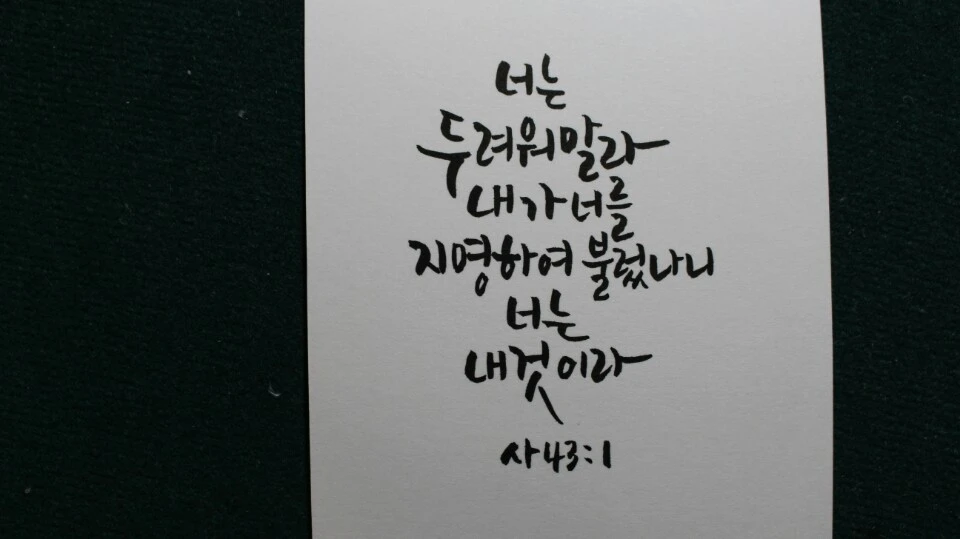 너는
두려워말라
내가너를
지명하여 불렀나니
너는
내것이라
사 43:1